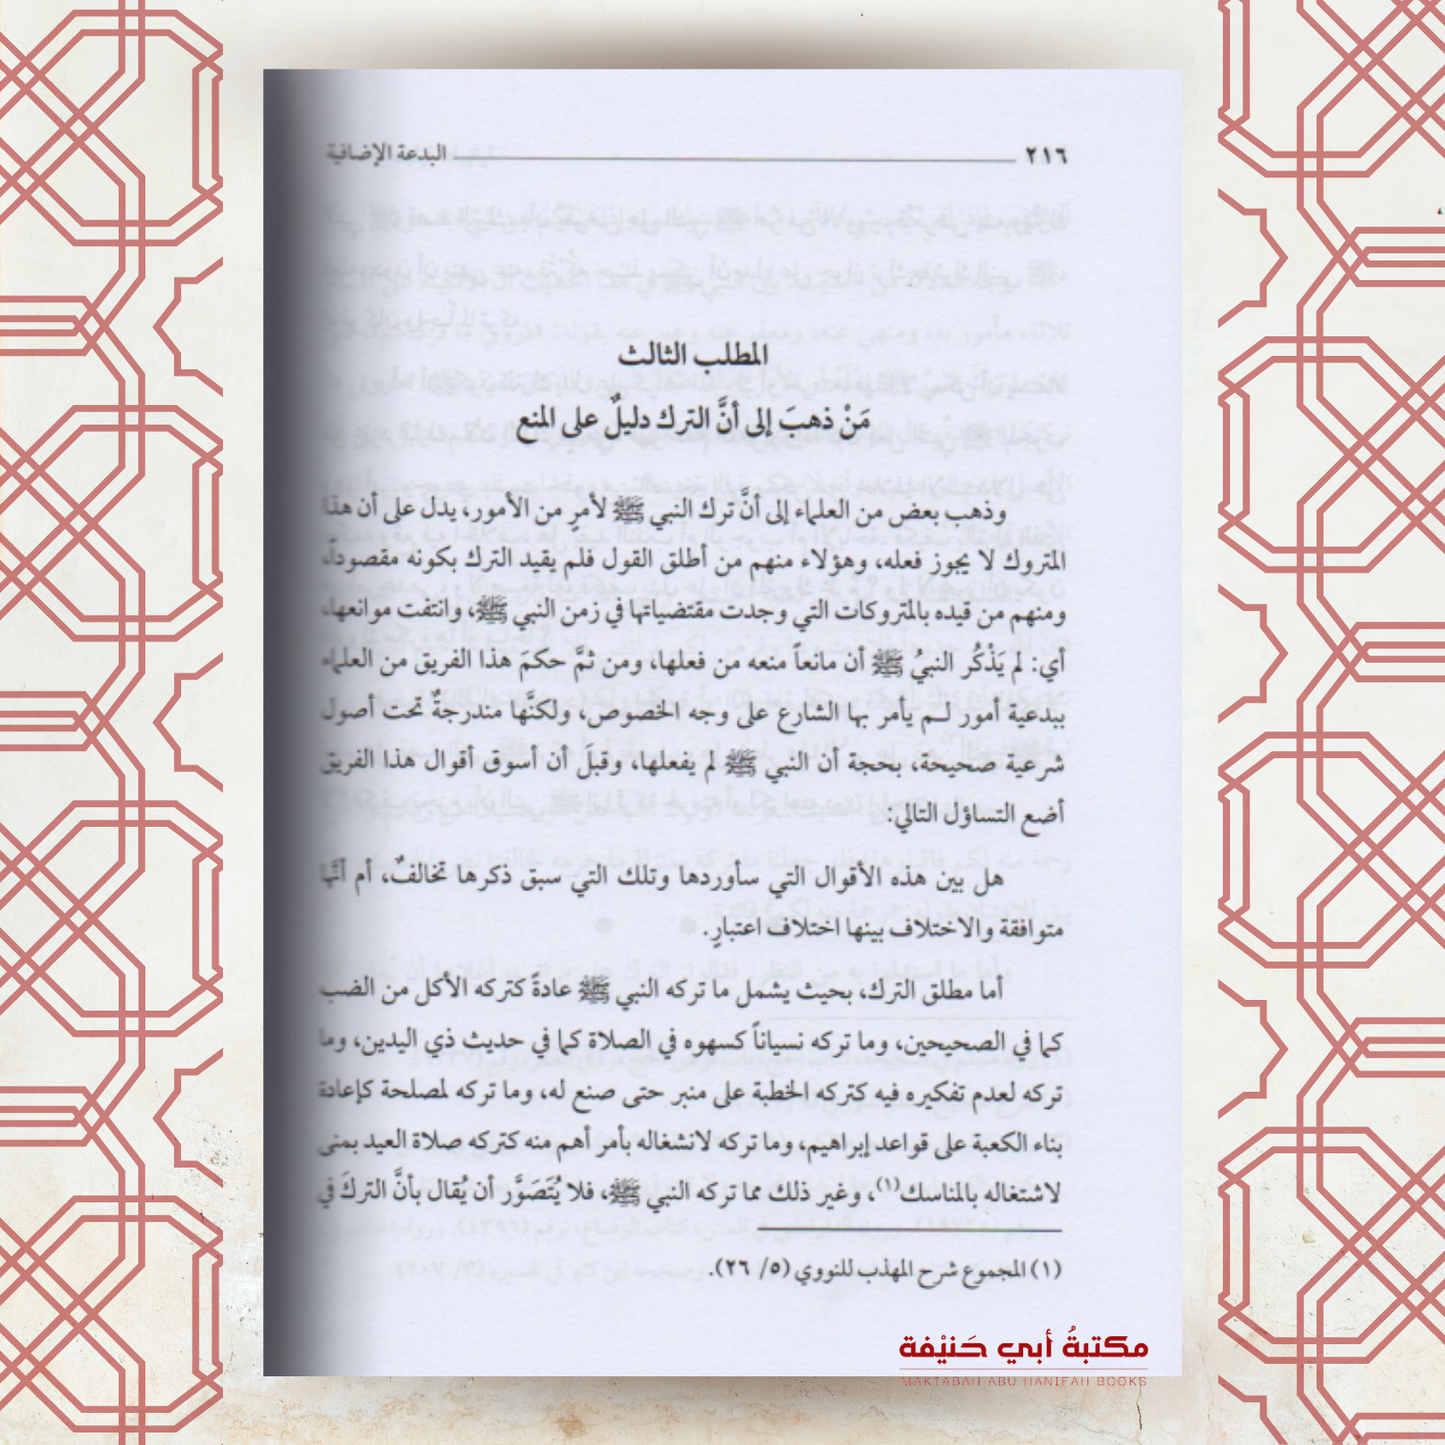 ٢١٦ البدعة الإضافية
المطلب الثالث
مَنْ ذهبَ إلى أنَّ الترك دليلٌ على المنع
وذهب بعض من العلماء إلى أنَّ ترك النبي ﷺ لأمرٍ من الأمور، يدل على أن هذا
المتروك لا يجوز فعله، وهؤلاء منهم من أطلق القول فلم يقيد الترك بكونه مقصوداً،
ومنهم من قيده بالمتروكات التي وجدت مقتضياتها في زمن النبي ﷺ، وانتفت موانعها،
أي: لم يَذْكُر النبيُ ﷺ أن مانعاً منعه من فعلها، ومن ثمَّ حكمَ هذا الفريق من العلماء
ببدعية أمور لـم يأمر بها الشارع على وجه الخصوص، ولكنَّها مندرجةٌ تحت أصول
شرعية صحيحة، بحجة أن النبي ﷺ لم يفعلها، وقبلَ أن أسوق أقوال هذا الفريق
أضع التساؤل التالي:
هل بين هذه الأقوال التي سأوردها وتلك التي سبق ذكرها تخالفٌ، أم أنَّها
متوافقة والاختلاف بينها اختلاف اعتبارٍ.
أما مطلق الترك، بحيث يشمل ما تركه النبي ﷺ عادةً كتركه الأكل من الضب
كما في الصحيحين، وما تركه نسياناً كسهوه في الصلاة كما في حديث ذي اليدين، وما
تركه لعدم تفكيره فيه كتركه الخطبة على منبر حتى صنع له، وما تركه لمصلحة كإعادة
بناء الكعبة على قواعد إبراهيم، وما تركه لانشغاله بأمر أهم منه كتركه صلاة العيد بمنى
لاشتغاله بالمناسك(١)، وغير ذلك مما تركه النبي ﷺ، فلا يُتَصَوَّر أن يُقال بأنَّ التركَ في
(١) المجموع شرح المهذب للنووي (٥/ ٢٦).
مكتبةُ أبي حَنيْفة
MAKTABAH ABU HANIFAH BOOKS